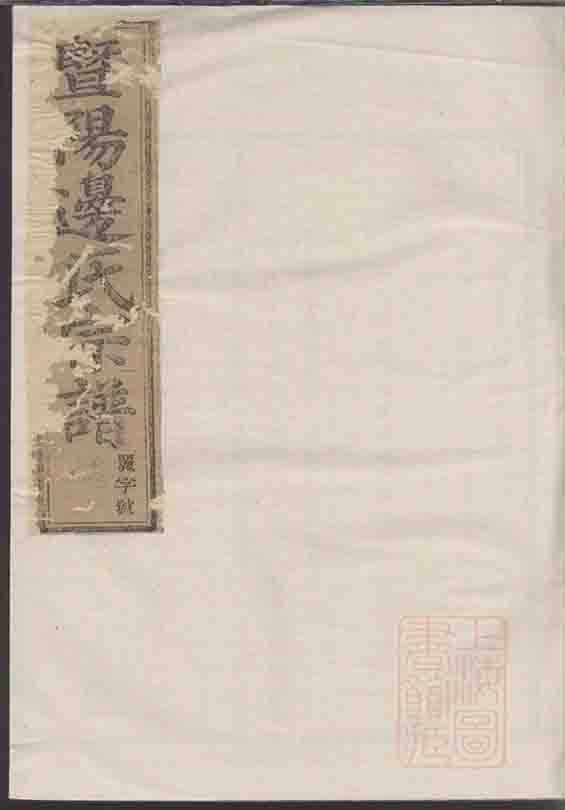 暨陽邊氏宗譜
字號
上海圖
書館藏